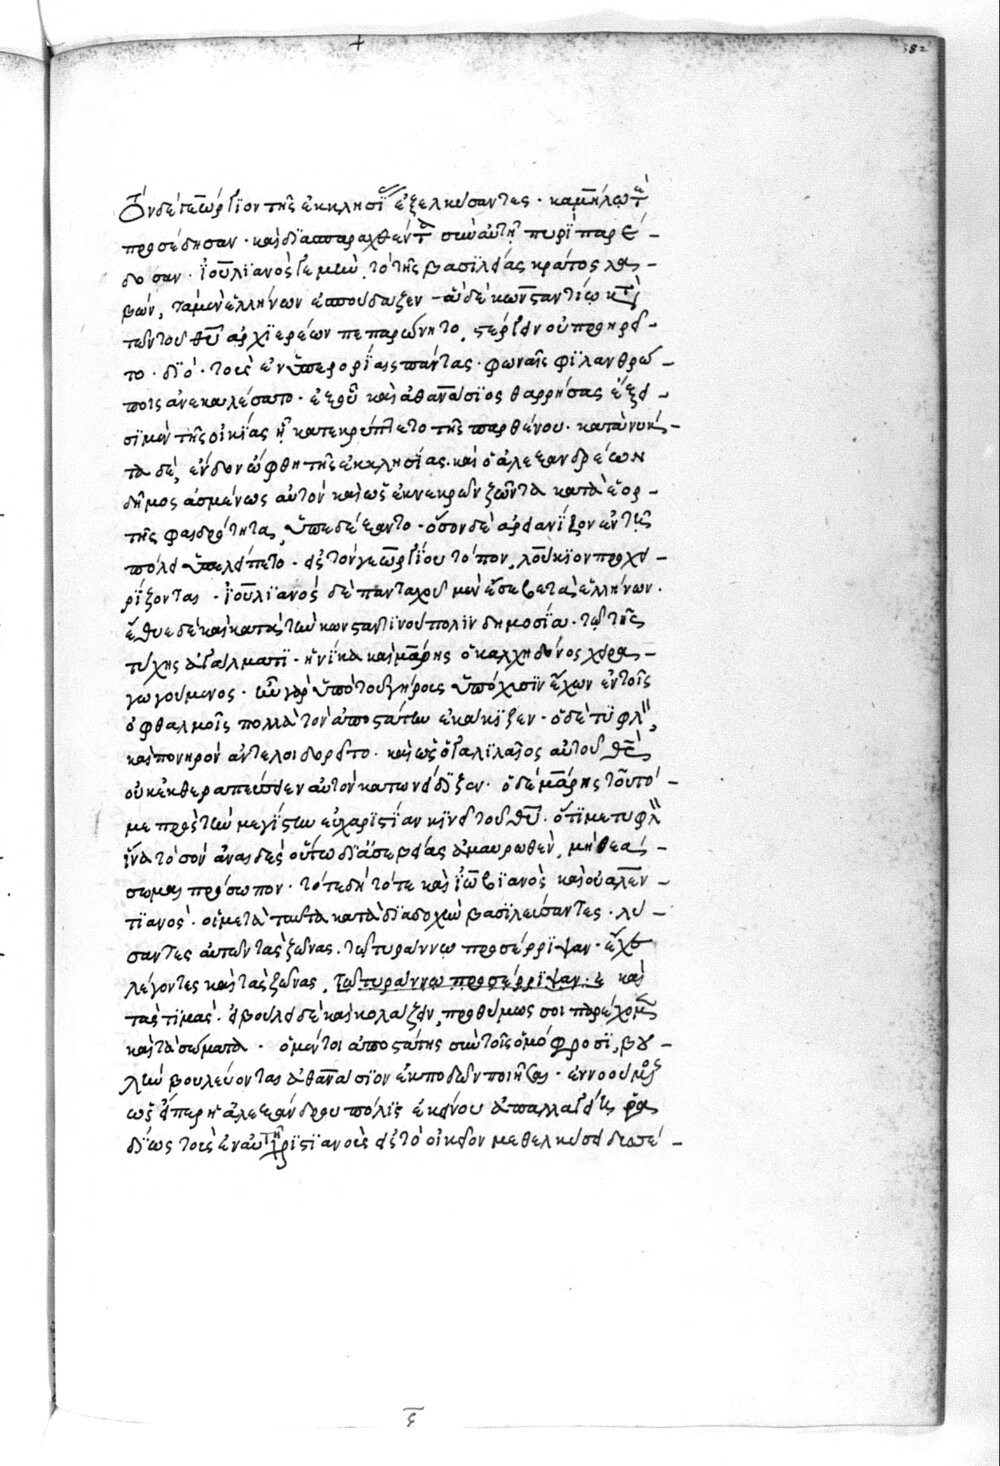 182
τὸν δὲ γεώργιον τῆς ἐκκλησίας ἐξελκύσαντες· καμήλω τὲ
προσέδησαν· καὶ διασπαραχθέντα σὺν αὐτῆ πυρὶ παρέ-
δοσαν· ἰουλιανὸς γε μὴν, τὸ τῆς βασιλείας κράτος λα-
βών, τὰ μὲν ἑλλήνων ἐσπούδαζεν
τῶν τοῦ θυ ἀρχιερέων πεπαρώνητο, στέργειν οὐ προηρεῖ-
το· διὸ· τοὺς ἐν ὑπερορίαις πάντας· φωναῖς φιλανθρώ-
ποις ἀνεκαλέσατο· ἐξ οὗ καὶ ἀθανάσιος θαρρήσας ἔξει-
σι μὲν τῆς οἰκίας ἧ κατεκρύπτετο τῆς παρθένου· κατὰ νύκ-
τα δὲ, ἔνδον ὤφθη τῆς ἐκκλησίας· καὶ ὁ ἀλεξανδρέων
δῆμος ἀσμένως αὐτὸν καὶ ὡς ἐκ νεκρῶν ζῶντα κατὰ ἑορ-
τῆς φαιδρότητα, ὑπεδέξαντο· ὅσον δὲ ἀρειανίζον ἐν τῆ
πόλει ὑπελείπετο· εἰς τὸν γεωργίου τόπον, λούκιον προχει-
ρίζονται· ἰουλιανὸς δὲ πανταχοῦ μὲν ἔσεβε τὰ ἑλλήνων·
ἔθυε δὲ καὶ κατὰ τὴν κωνσταντινούπολιν δημοσία· τῶ τῆς
τύχης ἀγάλματι· ἡνίκα καὶ μάρης ὁ καλχηδόνος χειρα-
γωγούμενος· ἦν γὰρ ὑπὸ τοῦ γήρως ὑπόχυσιν ἔχων ἐν τοῖς
ὀφθαλμοῖς πολλὰ τὸν ἀποστάτην ἐκάκιζεν· ὁ δὲ τυφλὸν,
καὶ πονηρὸν ἀντελοιδορεῖτο· καὶ ὡς ὁ γαλιλαῖος αὐτοῦ θς
οὐκ ἐκθεραπεύσειεν αὐτὸν κατωνείδιζεν· ὁ δὲ μάρης τοῦτό-
με πρὸς τὴν μεγίστην εὐχαριστίαν κινεῖ τοῦ θυ· ὅτι με τυφλὸν
ἵνα τὸ σὸν ἀναιδὲς οὕτω δι' ἀσεβείας ἀμαυρωθὲν, μὴ θεά-
σωμαι πρόσωπον· τότε δὴ τότε καὶ ἰωβιανὸς καὶ οὐαλεν-
τιανὸς· οἱ μετὰ ταῦτα κατὰ διαδοχὴν βασιλεύσαντες· λύ-
σαντες αὐτῶν τὰς ζώνας· τῶ τυράννω προσέρριψαν· ἔχε
λέγοντες καὶ τὰς ζώνας, τῶ τυράννω προσέρριψαν. ἔ καὶ
τὰς τιμάς· εἰ βούλει δὲ καὶ κολάζειν, προθύμως σοι παρέχομεν
καὶ τὰ σώματα· ὁ μέντοι ἀποστάτης σὺν τοῖς ὁμόφροσι, βου-
λὴν βουλεύονται ἀθανάσιον ἐκποδὼν ποιῆσαι· ἐννοούμενοι
ὡς εἴπερ ἡ ἀλεξάνδρου πόλις ἐκείνου ἀπαλλαγείη ῥα-
δίως τοὺς ἐν αὐτῆ χριστιανοὺς εἰς τὸ οἰκεῖον μεθελκύσει διασέ-
ς